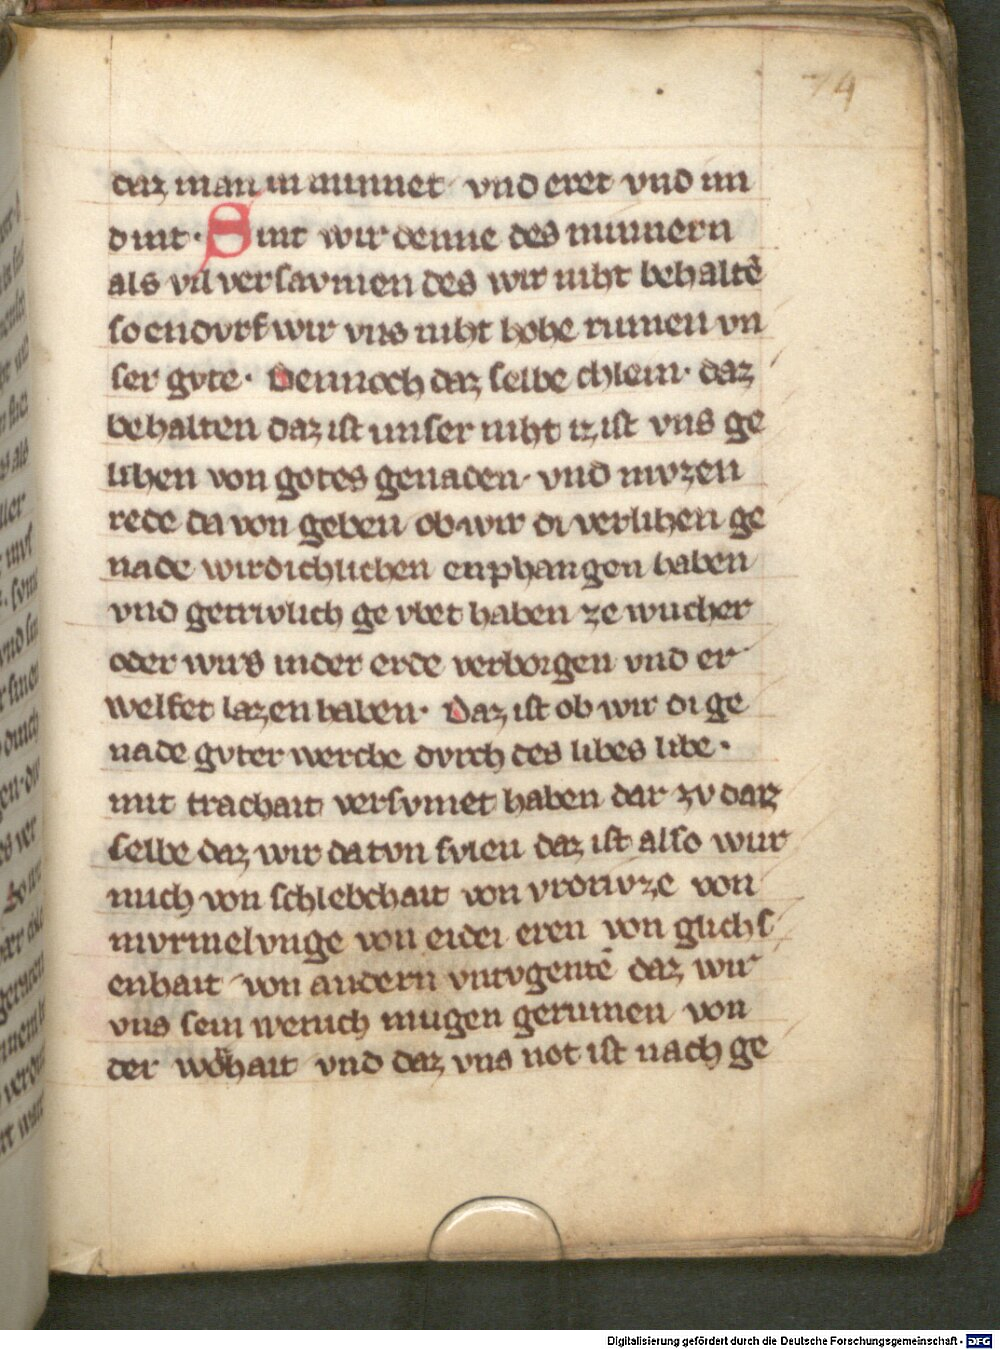 74
daz man in minnet vnd eret vnd im
dint · Sint wir denne des minnern
als vil versavmen des wir niht behaltē
so endvrf wir vns niht hohe rumen vn
ser gvte · Dennoch daz selbe chlein · daz
behalten daz ist unser niht iz ist vns ge
lihen von gotes genaden · vnd mvzen
rede da von geben ob wir di verlihen ge
nade wirdichlichen enphangen haben
vnd getrwlich ge vbet haben ze wucher
oder wirs in der erde verborgen vnd er
welket lazen haben · Daz ist ob wir di ge
nade gvter werche dvrch des libes libe ·
mit trachait versvmet haben dar zv daz
selbe daz wir da tvn svlen daz ist also wur
mich von schlebchait von vrorivze von
mvrmelvnge von eiden eren von glichs
enhait von andern vntvgentē daz wir
vns sein wenich mugen gerumen von
der hait vnd daz vns not ist nach ge
Digitalisierung gefördert durch die Deutsche Forschungsgemeinschaft - DFG